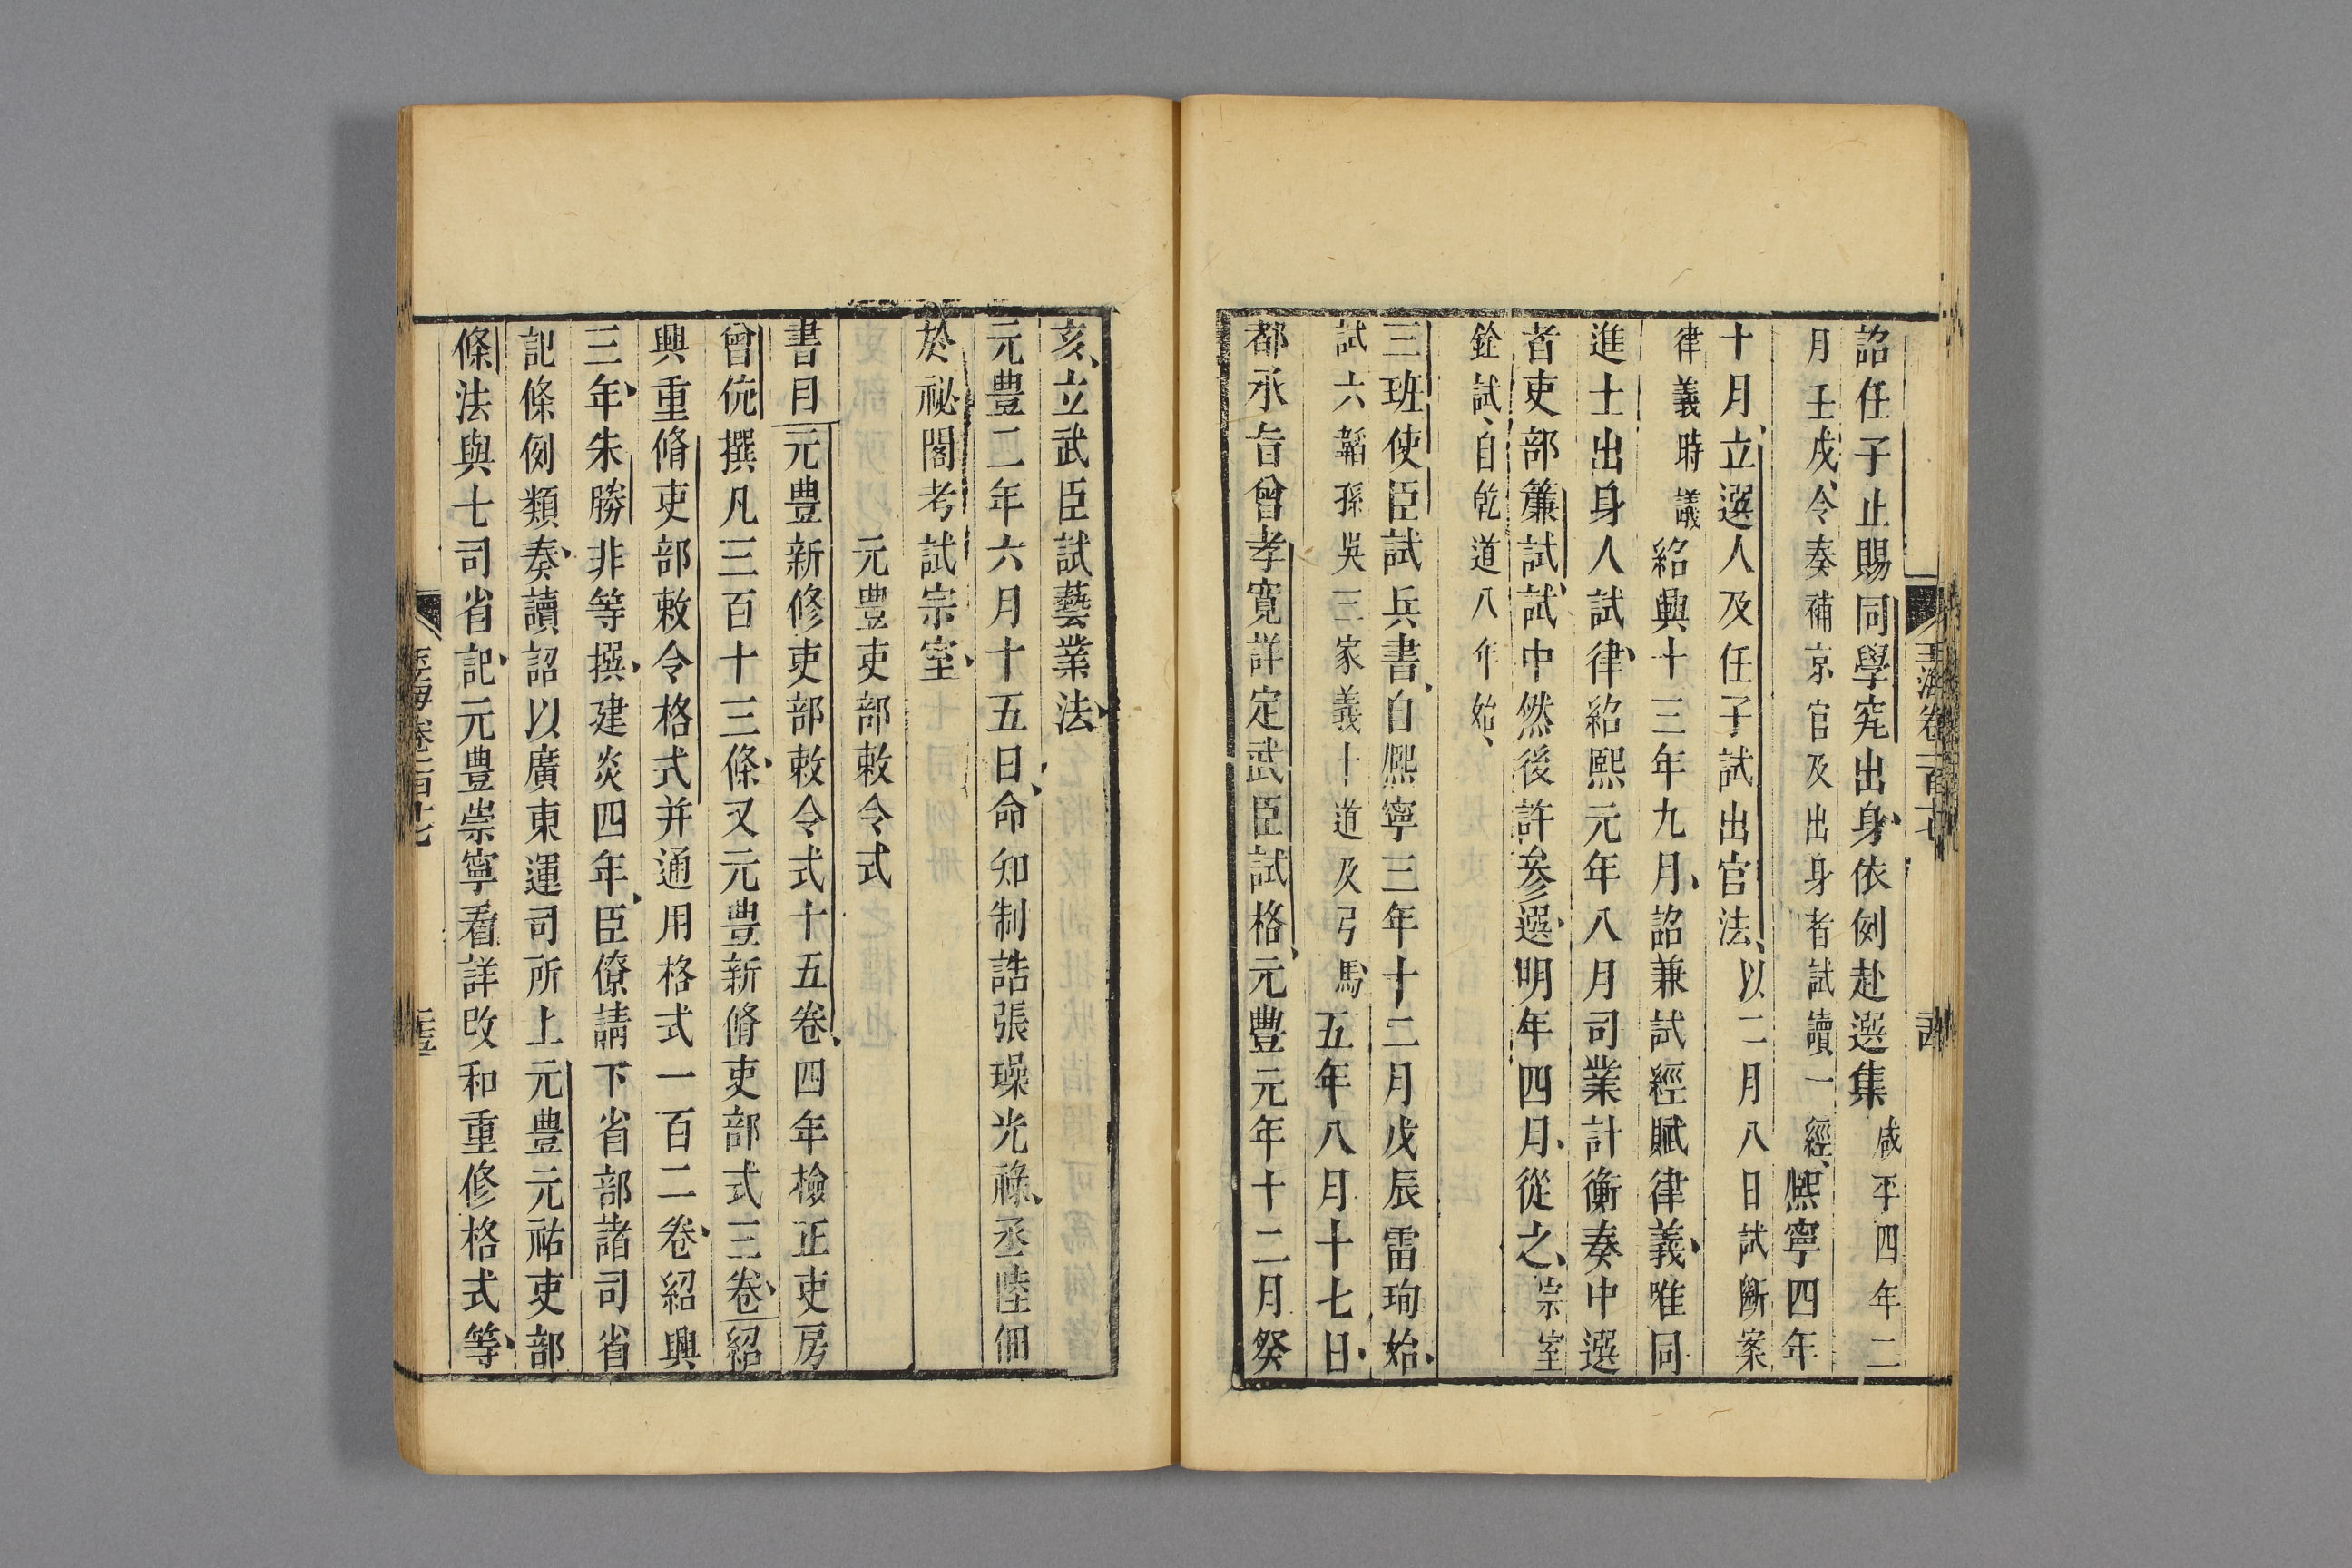 詔任子止賜同學究出身依例赴選集咸平四年二
月壬戌令奏補京官及出身者試讀一經熙寧四年
十月立選人及任子試出官法以二月八日試斷案
律義時議紹興十三年九月詔兼試經賦律義唯同
進士出身人試律紹熙元年八月司業計衡奏中選
者吏部簾試試中然後許參選明年四月從之宗室
銓試自乾道八年始
三班使臣試兵書自熙寧三年十二月戊辰雷珣始
試六韜孫吳三家義十道及弓馬五年八月十七日
都承旨曾孝寬詳定武臣試格元豊元年十二月癸
亥立武臣試藝業法
元豊二年六月十五日命知制誥張璪光祿丞陸佃
於祕閣考試宗室
元豊吏部敕令式
書目元豊新修吏部敕令式十五卷四年檢正吏房
曾伉撰凡三百十三條又元豊新脩吏部式三卷紹
興重脩吏部敕令格式并通用格式一百二卷紹興
三年朱勝非等撰建炎四年臣僚請下省部諸司省
記條例類奏讀詔以廣東運司所上元豊元祐吏部
條法與七司省記元豊崇寧看詳政和重修格式等